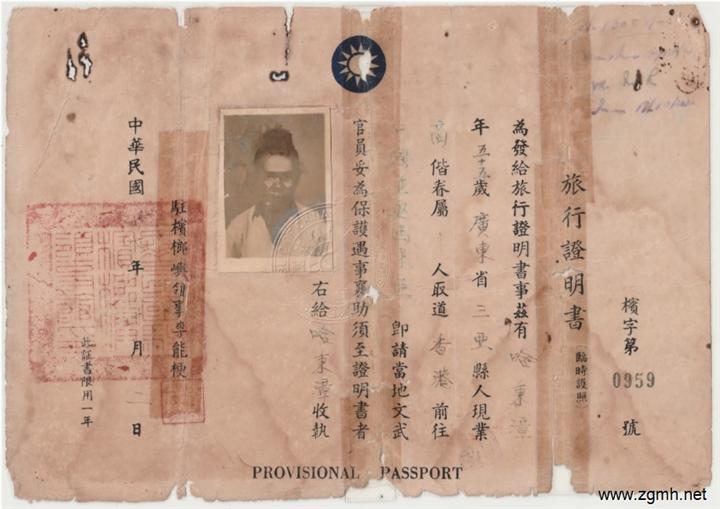 檳字第 0959 號
旅行證明書 (臨時護照)
為發給旅行證明書事茲有 哈東漳
年五十五歲廣東省三亞縣人現業
商 偕眷屬 人取道香港前往
即請當地文武
官員妥為保護遇事襄助須至證明書者
右給哈東漳收執
駐檳榔嶼領事李能梗
中華民國 年 月 日
此証書限用一年
PROVISIONAL PASSPORT
www.zgmh.net